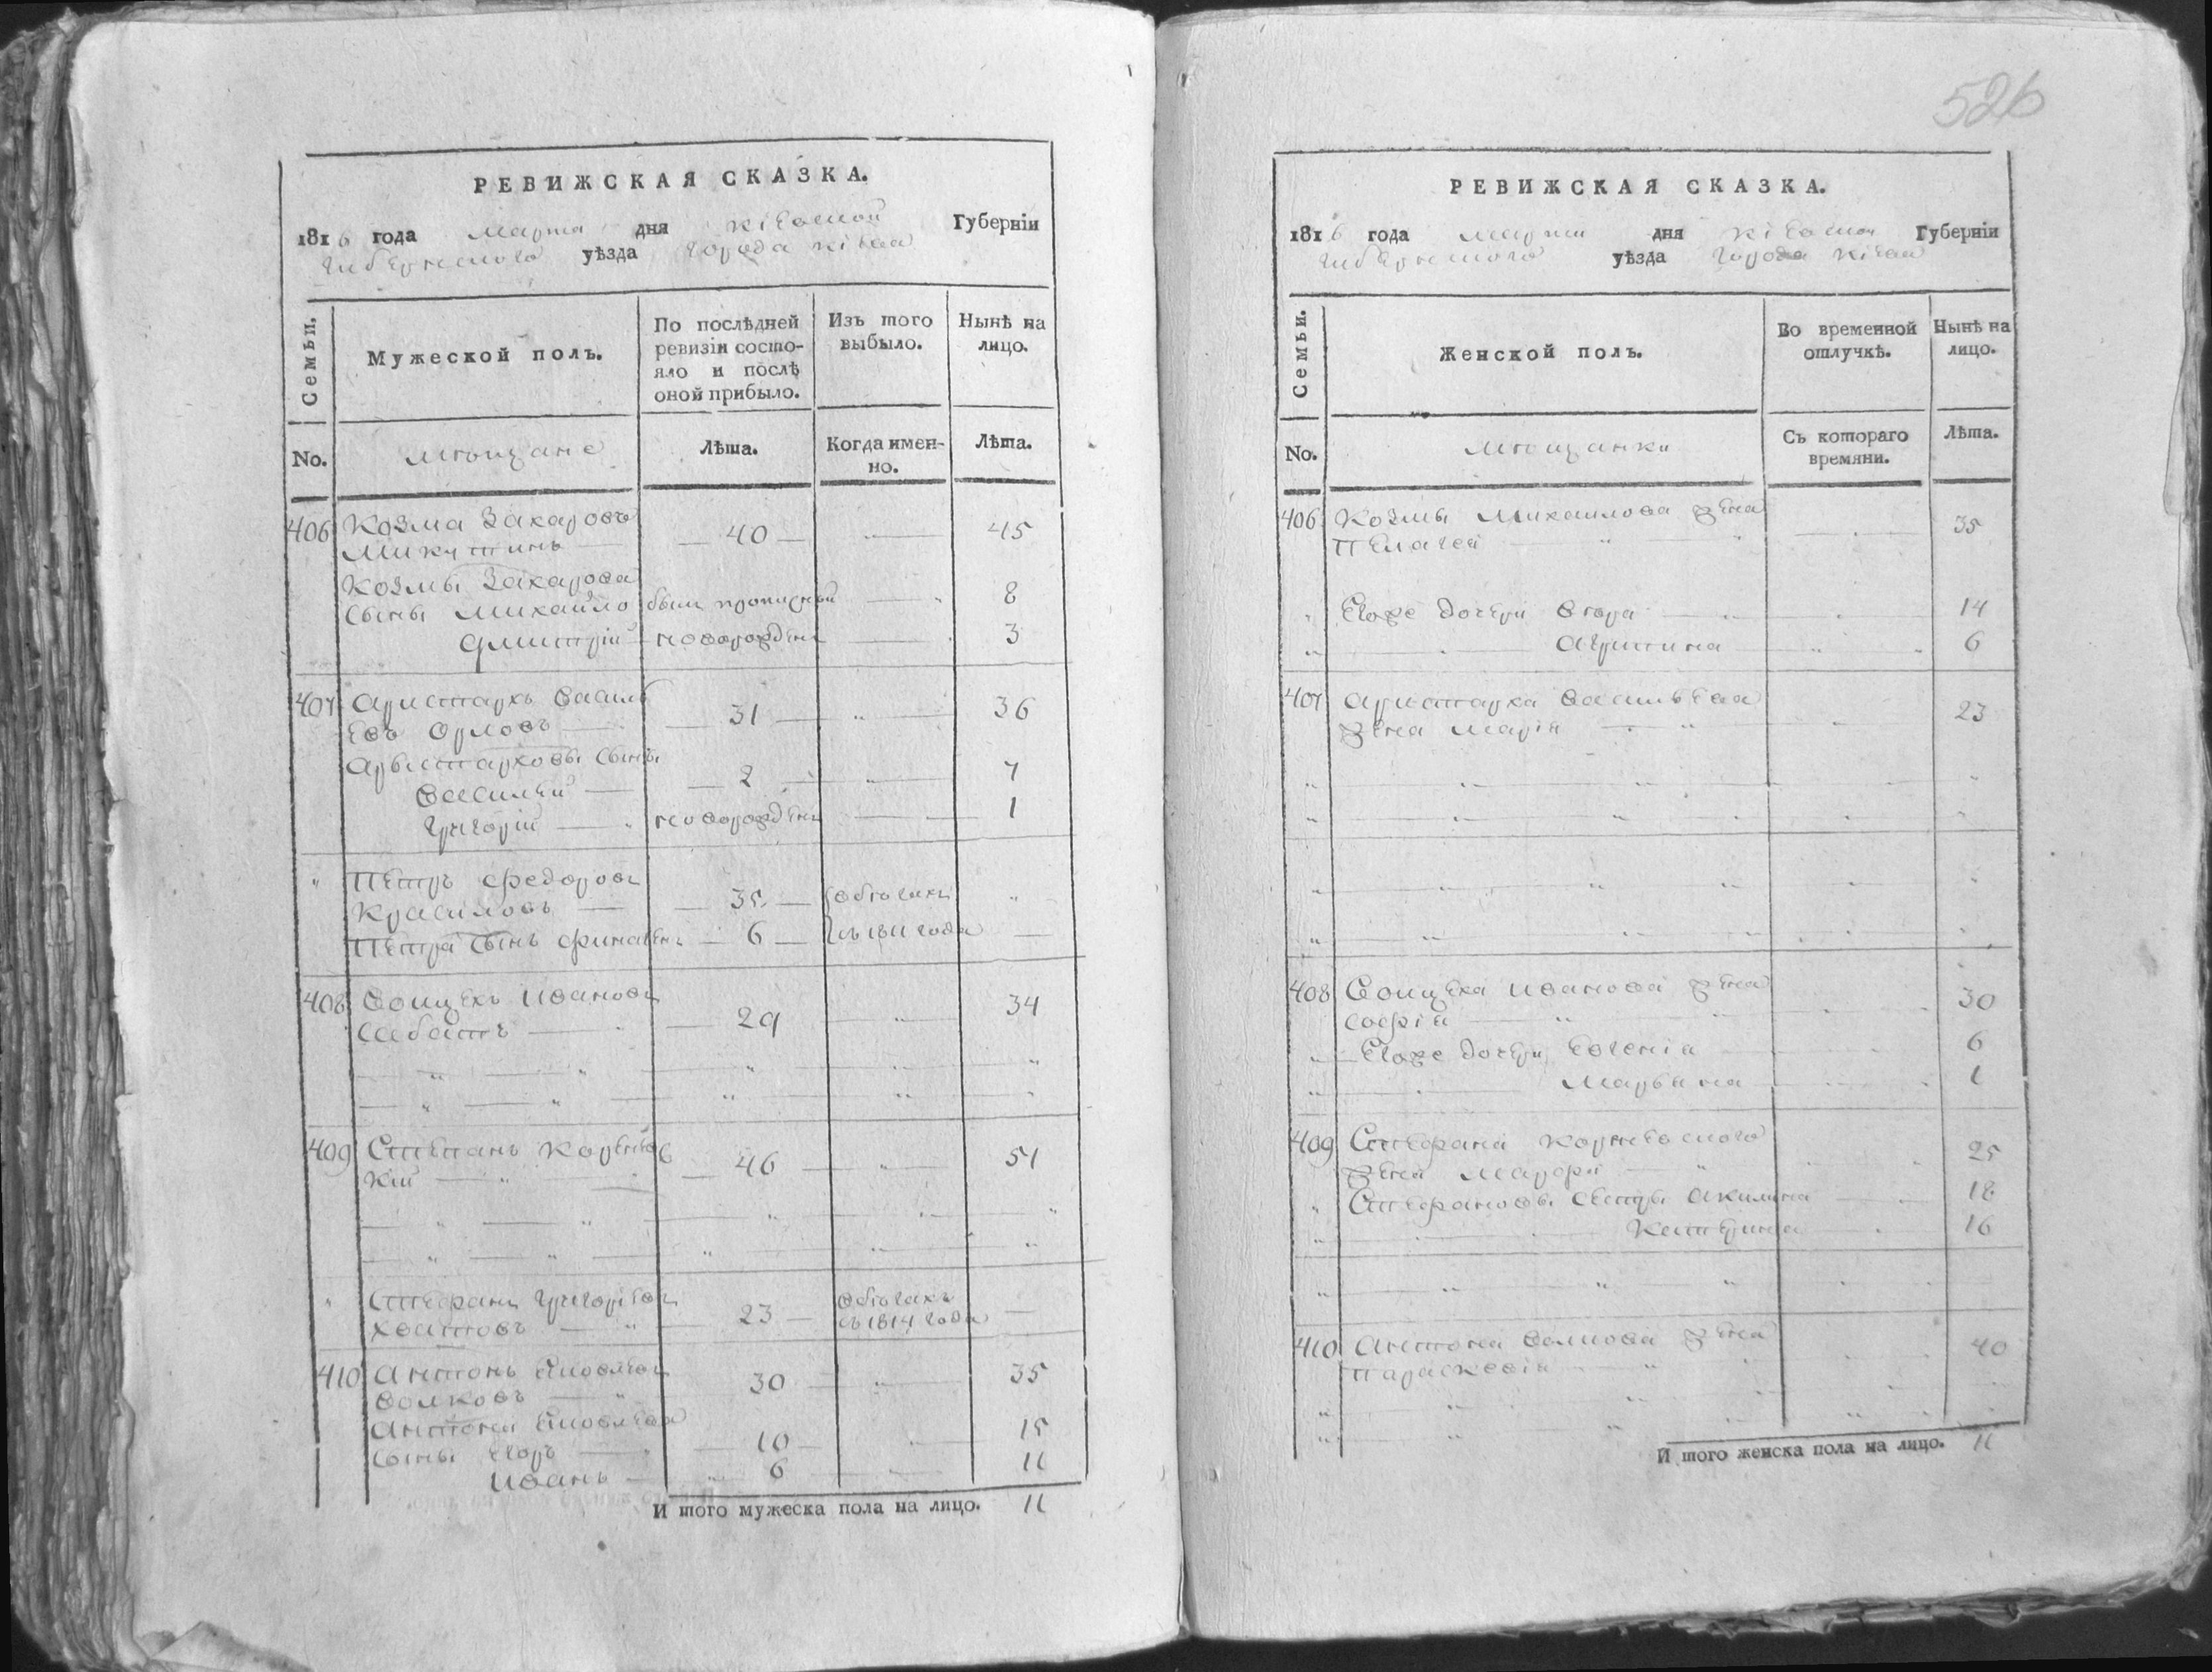 РЕВИЖСКАЯ СКАЗКА.
1816 года марта дня Кіевской Губерніи
Губернского уѣзда города Кіева
Семьи.
Мужеской полъ.
По послѣдней ревизіи состояло и послѣ оной прибыло.
Изъ того выбыло.
Нынѣ на лицо.
No.
мѣщане
Лѣта.
Когда именно.
Лѣта.
406 Козма Захаровъ
Микитинъ — 40 — 45
Козмы Захарова
сыны Михайло 8
Дмитрій новорожденъ 3
407 Аристархъ Василь
евъ Орловъ — 31 — 36
Аристарховы сыны
Василий — 2 — 7
Григорій новорожденъ 1
Петръ Федоровъ
— 35 — въ бѣгахъ
Петра сынъ — 6 — съ 1811 года
408 Ивановъ
— 29 34
409 Степанъ Корнѣев
кій — 46 — 51
Стефанъ Григорьевъ
Хватовъ — 23 — въ бѣгахъ
съ 1814 года
410 Антонъ Яковлевъ
Волковъ 30 35
Антона Яковлева
сыны Егоръ — 10 — 15
Иванъ — 6 11
И того мужеска пола на лицо. 11
526
РЕВИЖСКАЯ СКАЗКА.
1816 года марта дня Кіевской Губерніи
Губернского уѣзда города Кіева
Семьи.
Женской полъ.
Во временной отлучкѣ.
Нынѣ на лицо.
No.
мѣщанки
Съ котораго времяни.
Лѣта.
406 Козмы Михаилова жена
Пелагея 35
Егоже дочери 14
Агрипина 6
407 Аристарха Васильева
жена Марія 23
408 Войцеха Иванова жена
Софія 30
Егоже дочери Евгенія 6
Марьяна 1
409 Стефана Корнѣевского
жена Марфа 25
Стефановы сестры Акилина 18
Катерина 16
410 Антона Волкова жена
Параскевія 40
И того женска пола на лицо. 11